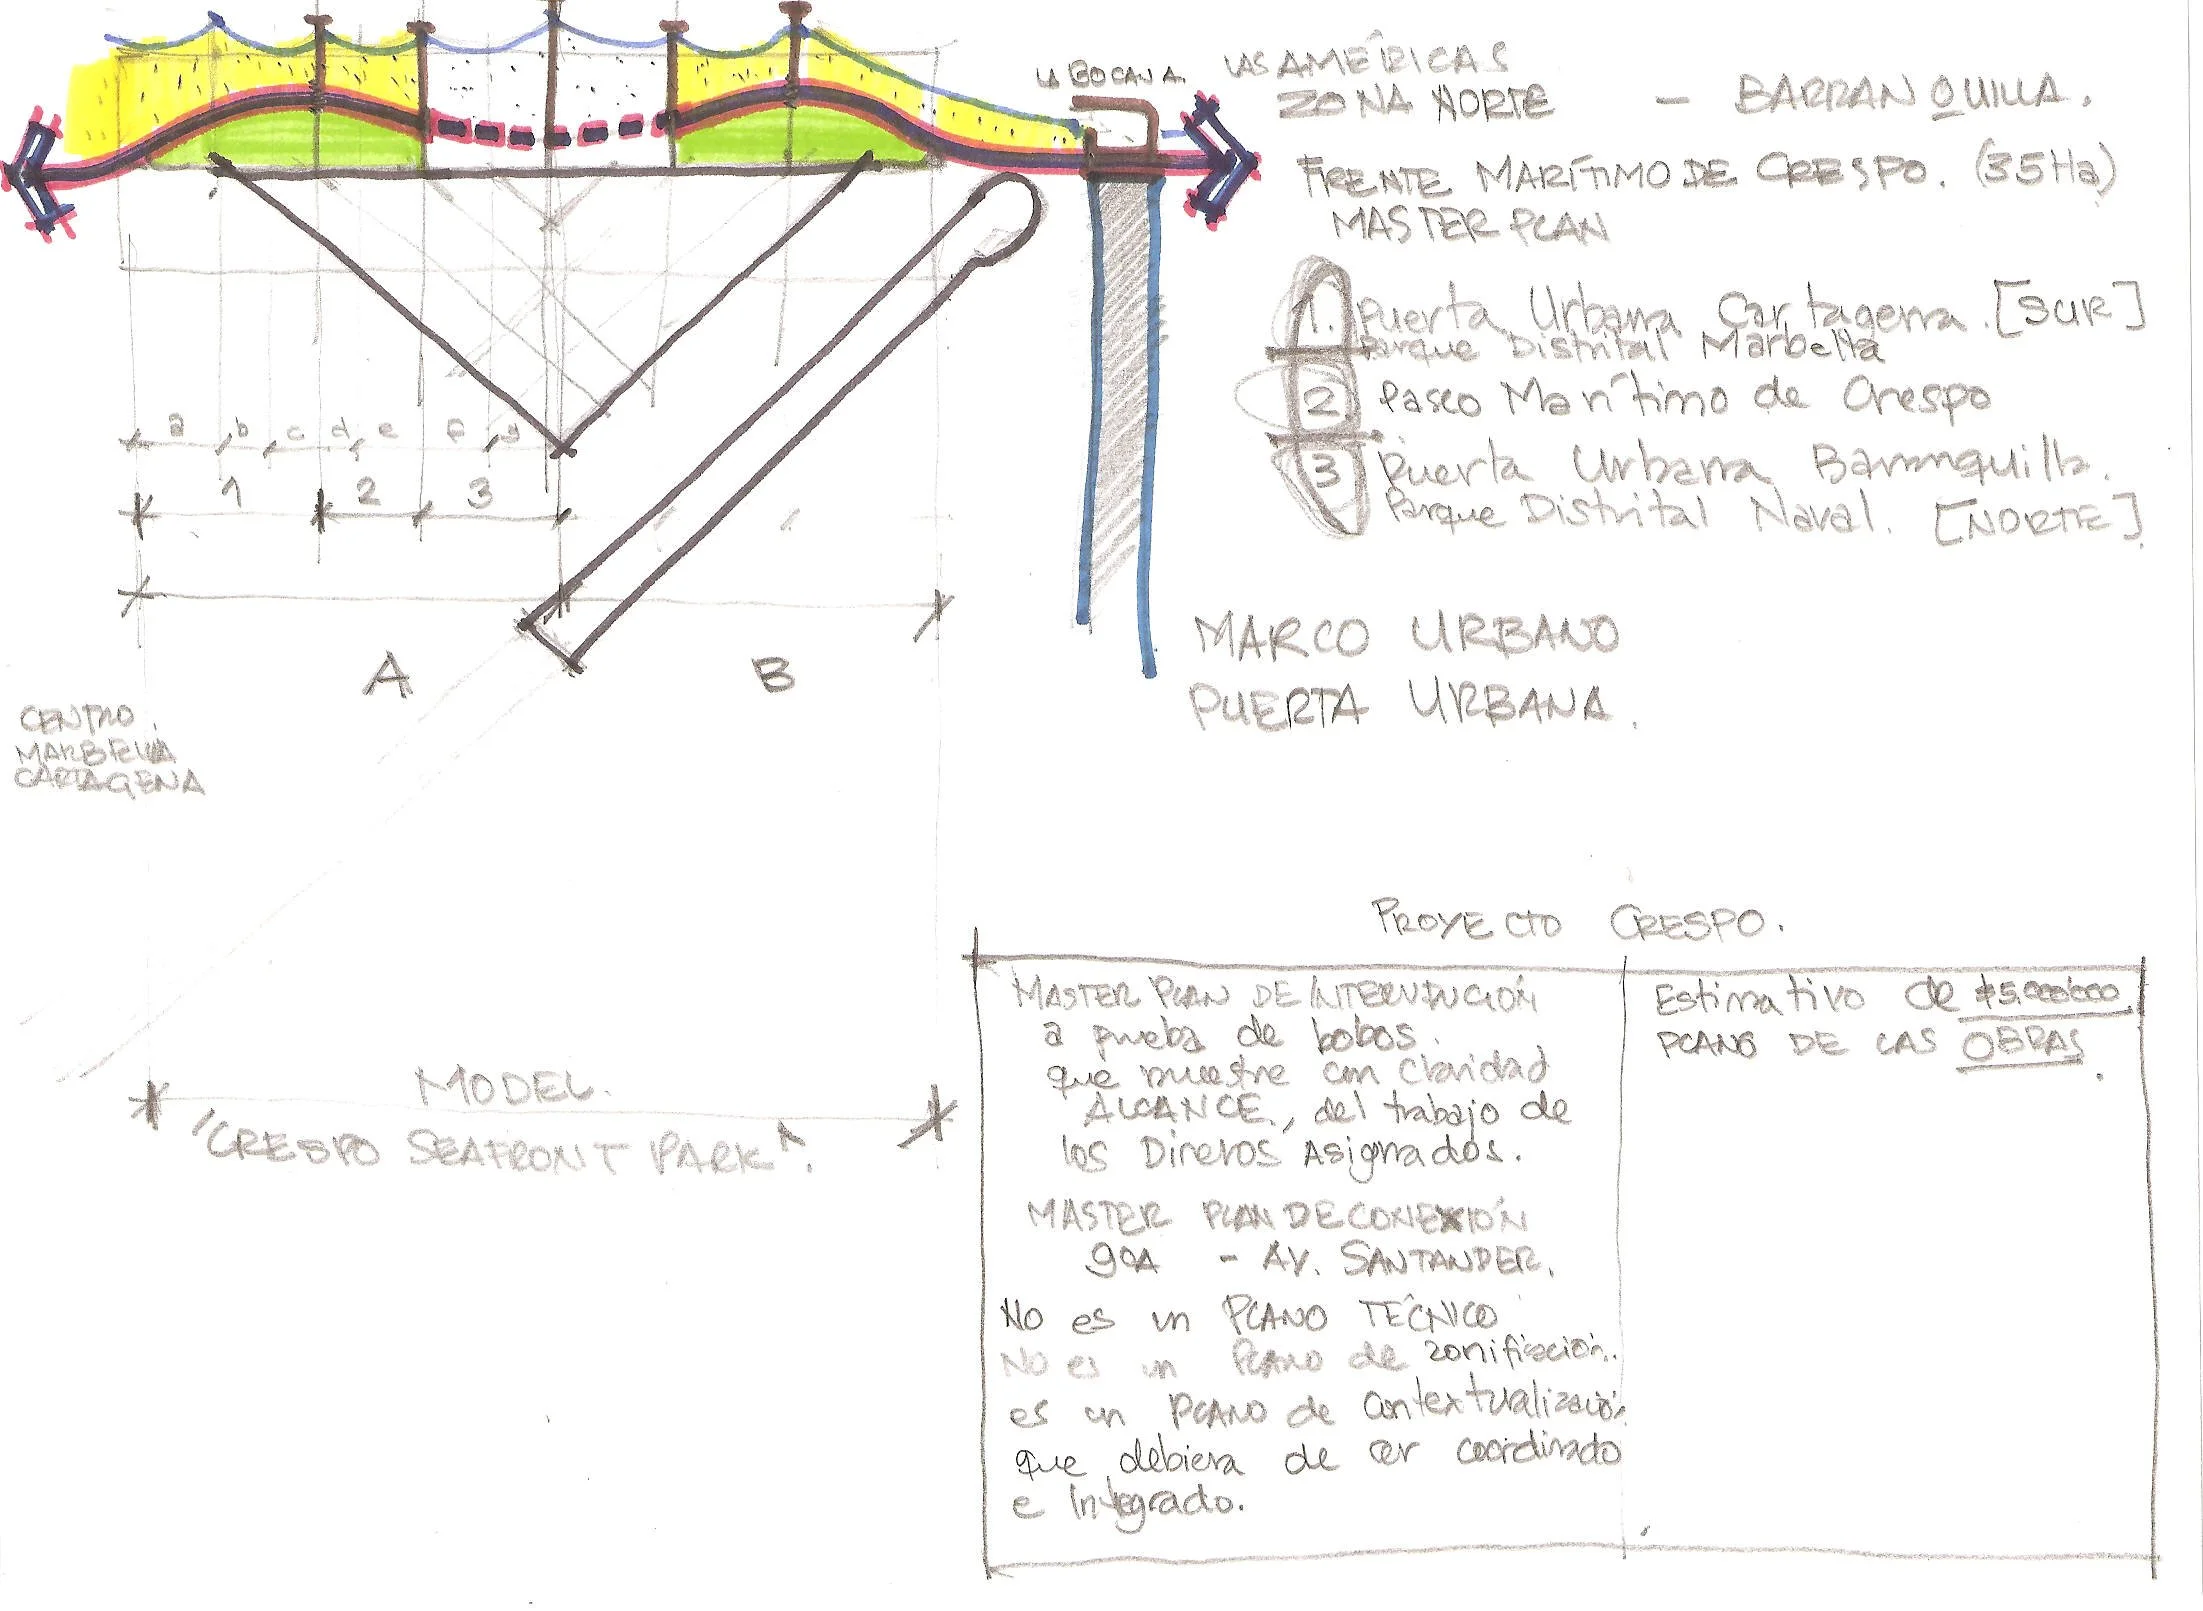 LA BOCANA.
LAS AMÉRICAS
ZONA NORTE - BARRANQUILLA.
FRENTE MARÍTIMO DE CRESPO. (35Ha)
MASTER PLAN
1. Puerta Urbana Cartagena. [SUR]
Parque Distrital Marbella
2. Paseo Marítimo de Crespo
3 Puerta Urbana Barranquilla.
Parque Distrital Naval. [NORTE]
a b c d e f g
1 2 3
A B
MARCO URBANO
PUERTA URBANA.
CENTRO.
MARBELLA
CARTAGENA
MODEL.
"CRESPO SEAFRONT PARK".
PROYECTO CRESPO.
MASTER PLAN DE INTERVENCIÓN
a prueba de bobos.
que muestre con claridad
ALCANCE, del trabajo de
los Dineros Asignados.
MASTER PLAN DE CONEXIÓN
90A - AV. SANTANDER.
NO es un PLANO TÉCNICO
NO es un PLANO de zonificación.
es un PLANO de Contextualización
que debiera de ser coordinado
e Integrado.
Estimativo de
PLANO DE LAS OBRAS.